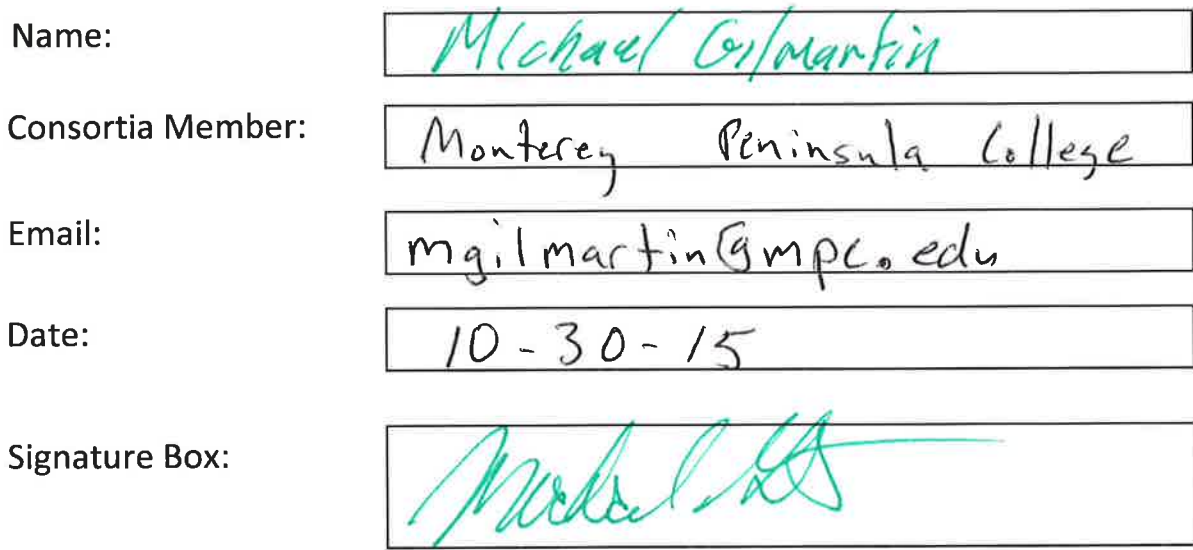 Name: Michael Gilmartin
Consortia Member: Monterey Peninsula College
Email: mgilmartin@mpc.edu
Date: 10-30-15
Signature Box: Michael